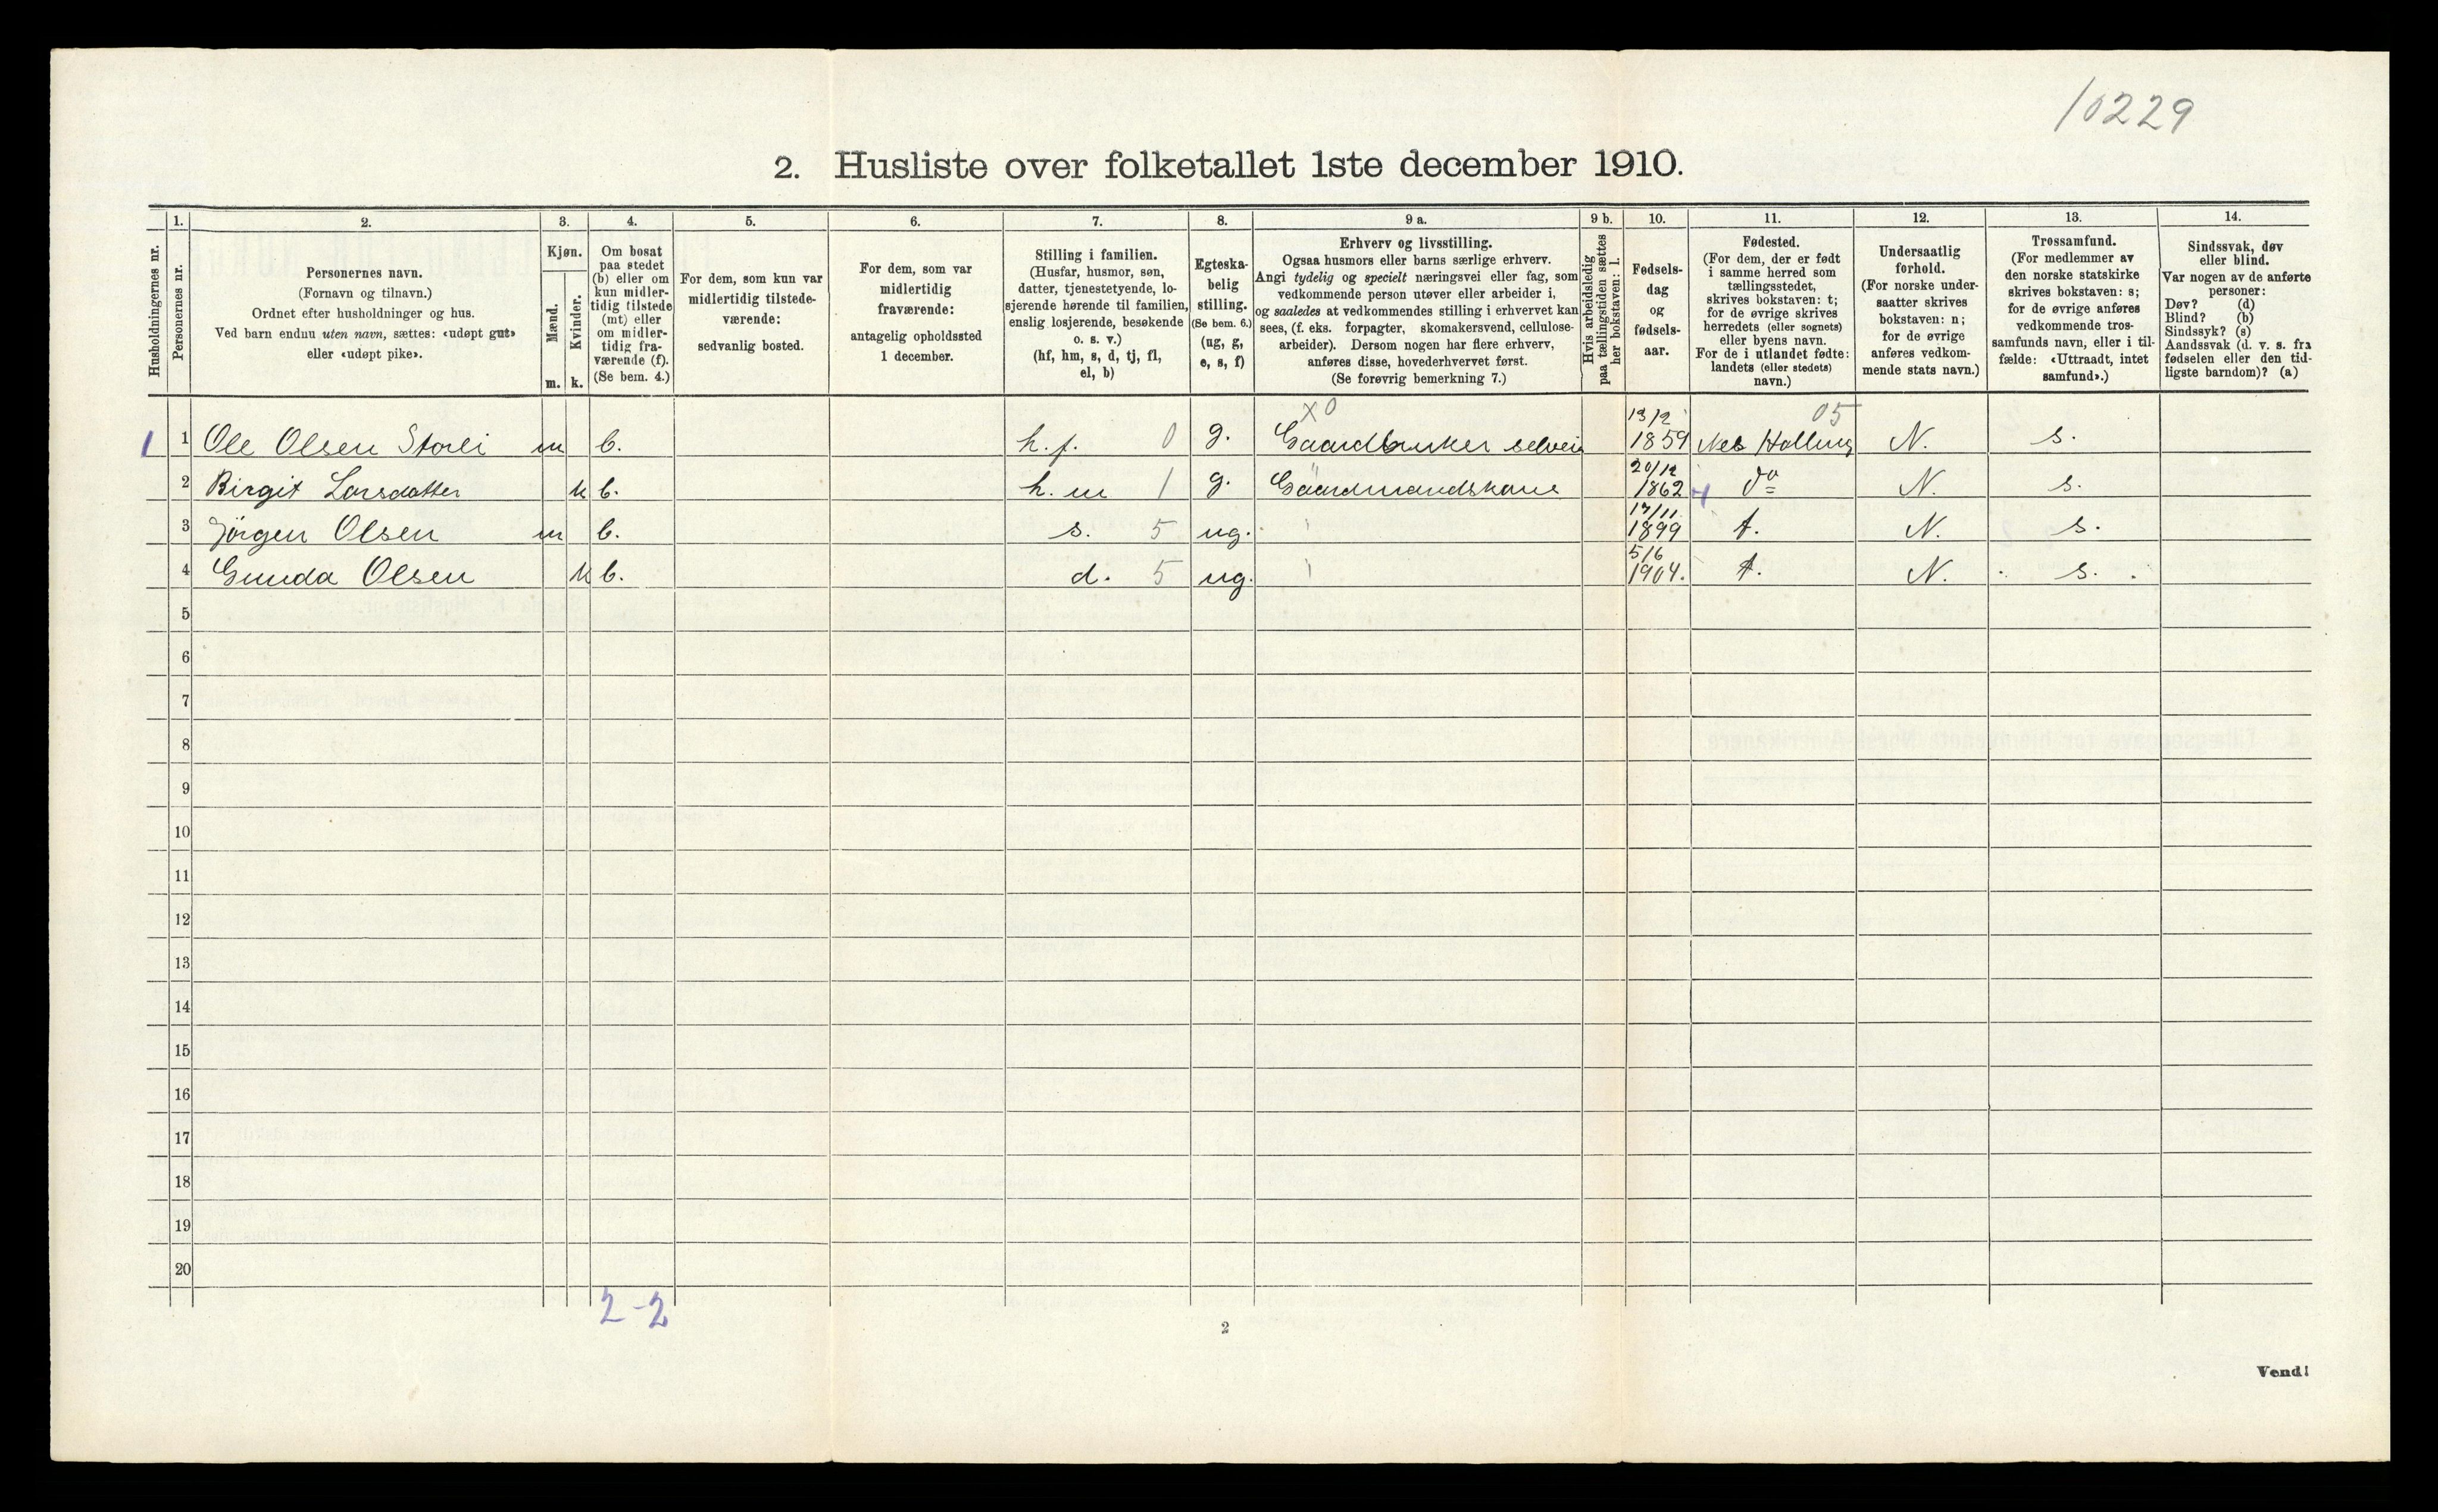 10229
2. Husliste over folketallet 1ste december 1910.
Husholdningernes nr.
1.
Personernes nr.
2.
Personernes navn.
(Fornavn og tilnavn.)
Ordnet efter husholdninger og hus.
Ved barn endnu uten navn, sættes: «udøpt gut»
eller «udøpt pike».
3.
Kjøn.
Mænd.
Kvinder.
m. k.
4.
Om bosat
paa stedet
(b) eller om
kun midler-
tidig tilstede
(mt) eller
om midler-
tidig fra-
værende (f).
(Se bem. 4.)
5.
For dem, som kun var
midlertidig tilstede-
værende:
sedvanlig bosted.
6.
For dem, som var
midlertidig
fraværende:
antagelig opholdssted
1 december.
7.
Stilling i familien.
(Husfar, husmor, søn,
datter, tjenestetyende, lo-
sjerende hørende til familien,
enslig losjerende, besøkende
o. s. v.)
(hf, hm, s, d, tj, fl,
el, b)
8.
Egteska-
belig
stilling.
(Se bem. 6.)
(ug, g,
e, s, f)
9 a.
Erhverv og livsstilling.
Ogsaa husmors eller barns særlige erhverv.
Angi tydelig og specielt næringsvei eller fag, som
vedkommende person utøver eller arbeider i,
og saaledes at vedkommendes stilling i erhvervet kan
sees, (f. eks. forpagter, skomakersvend, cellulose-
arbeider). Dersom nogen har flere erhverv,
anføres disse, hovederhvervet først.
(Se forøvrig bemerkning 7.)
9 b.
Hvis arbeidsledig
paa tællingstiden sættes
her bokstaven: l.
10.
Fødsels-
dag
og
fødsels-
aar.
11.
Fødested.
(For dem, der er født
i samme herred som
tællingsstedet,
skrives bokstaven: t;
for de øvrige skrives
herredets (eller sognets)
eller byens navn.
For de i utlandet fødte:
landets (eller stedets)
navn.)
12.
Undersaatlig
forhold.
(For norske under-
saatter skrives
bokstaven: n;
for de øvrige
anføres vedkom-
mende stats navn.)
13.
Trossamfund.
(For medlemmer av
den norske statskirke
skrives bokstaven: s;
for de øvrige anføres
vedkommende tros-
samfunds navn, eller i til-
fælde: «Uttraadt, intet
samfund».)
14.
Sindssvak, døv
eller blind.
Var nogen av de anførte
personer:
Døv? (d)
Blind? (b)
Sindssyk? (s)
Aandssvak (d. v. s. fra
fødselen eller den tid-
ligste barndom)? (a)
x0 13/2 05
1 1 Ole Olsen Storli m b. h. f. 0 g. Gaardbruker selvei 1859 Nes Halling N. s.
20/12
2 Birgit Larsdatter k b. h. m 1 g. Gaardmandskone 1862 do N. s.
17/11
3 Jörgen Olsen m b. s. 5 ug. 1899 t. N. s.
5/6
4 Gunda Olsen k b. d. 5 ug. 1904. t. N. s.
5
6
7
8
9
10
11
12
13
14
15
16
17
18
19
20
2-2
2
Vend!